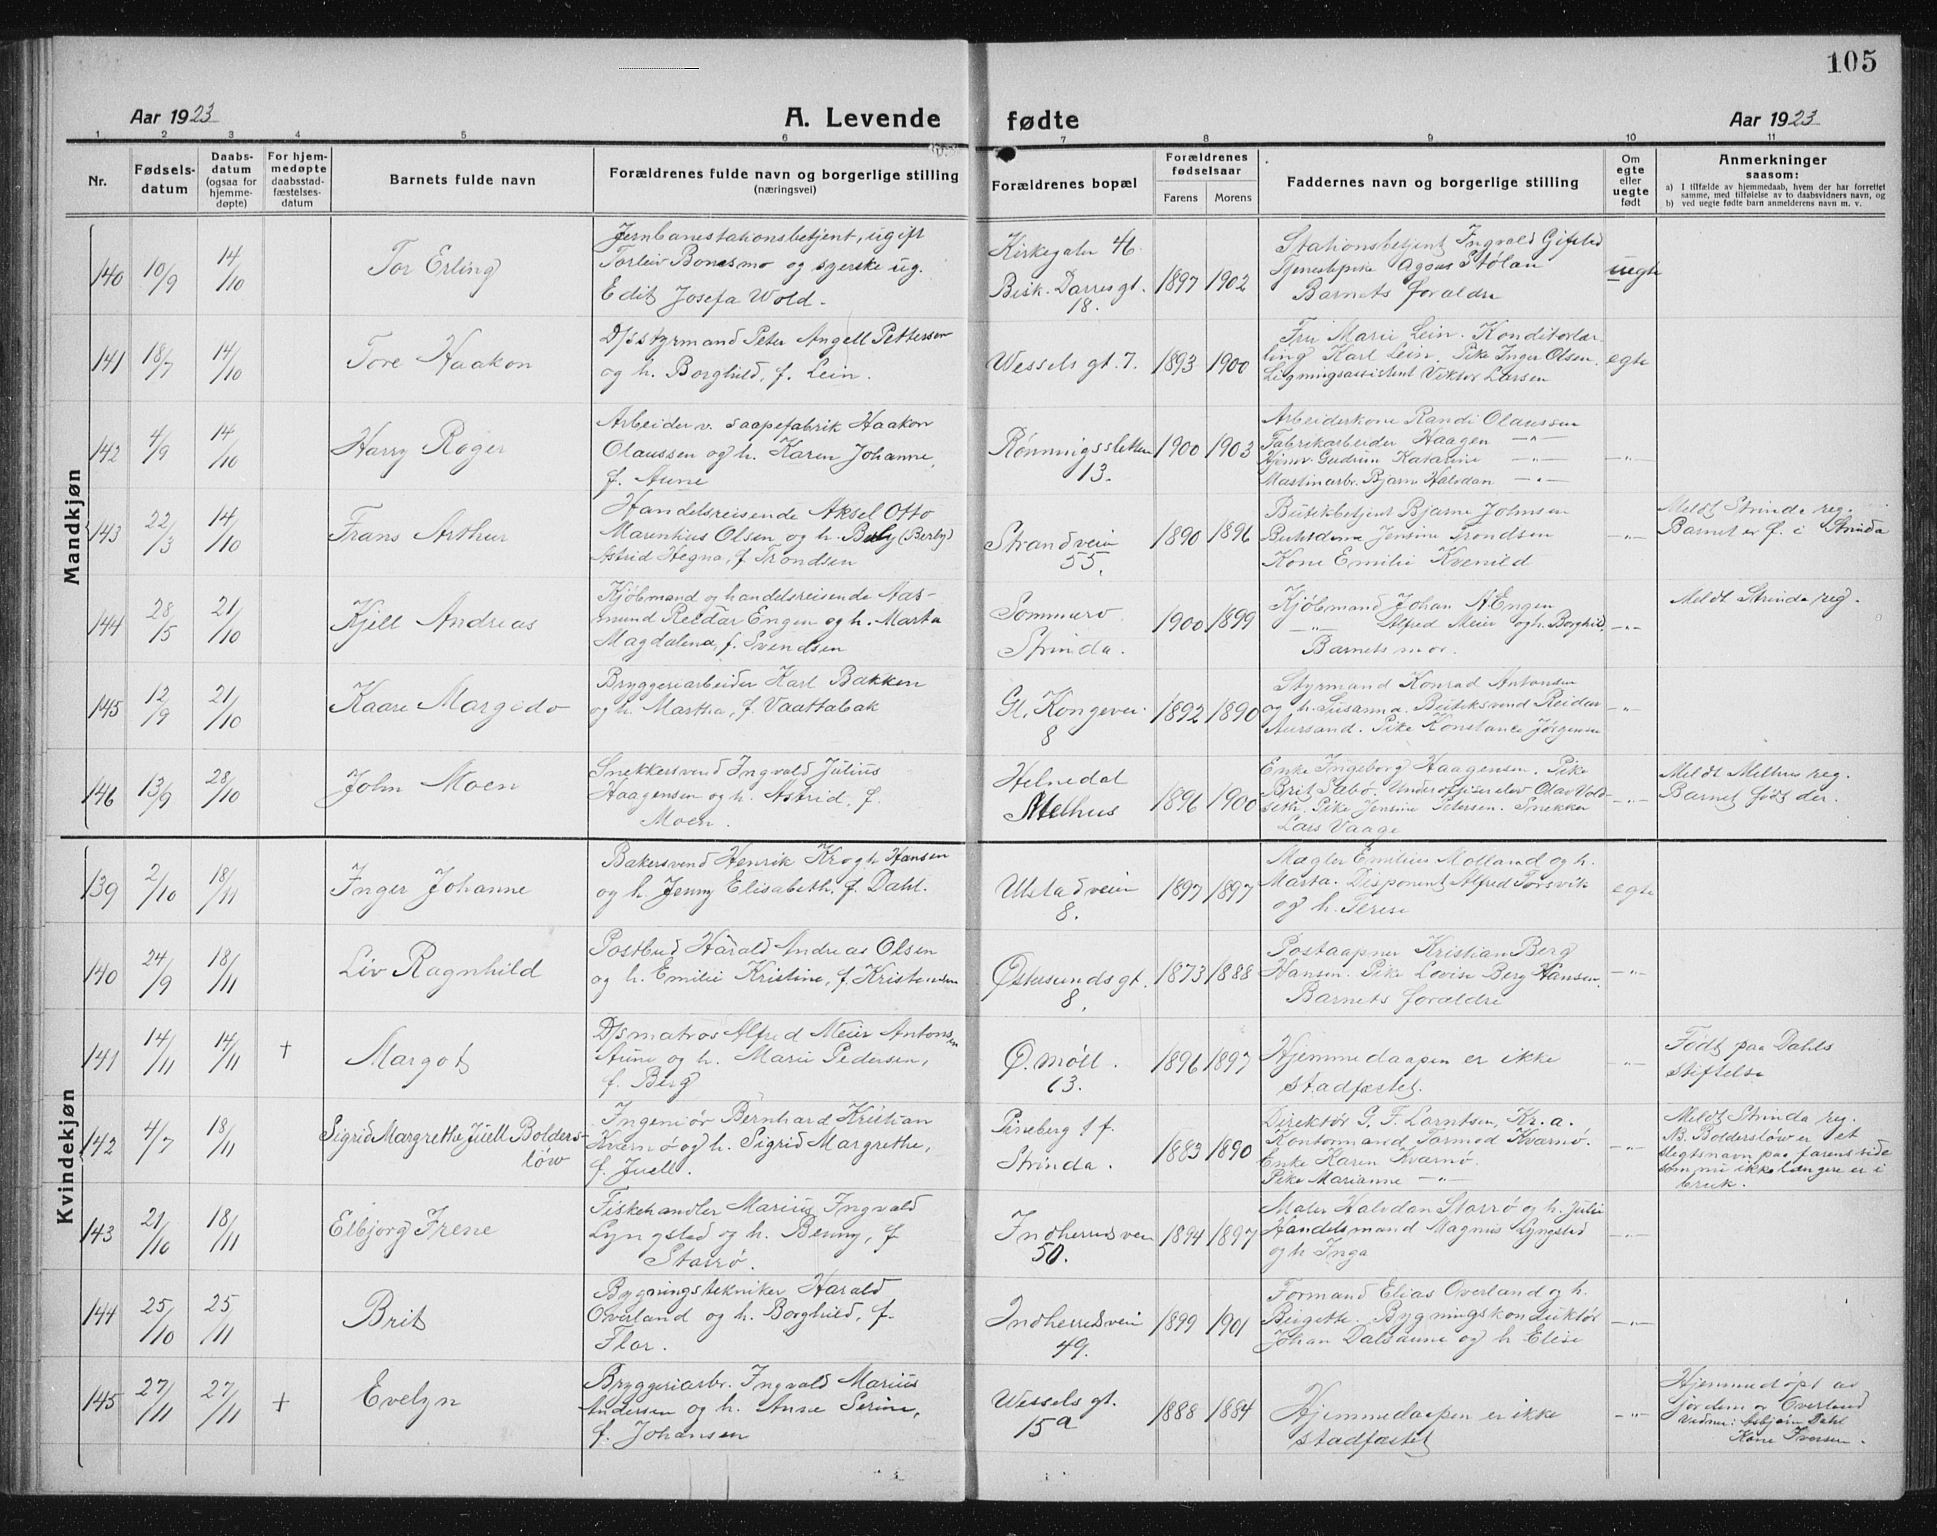 105
Aar 1923
A. Levende fødte
Aar 1923
1 2 3 4 5 6 7 8 9 10 11
Nr.
Fødsels-
datum
Daabs-
datum
(ogsaa for
hjemme-
døpte)
For hjem-
medøpte
daabsstad-
fæstelses-
datum
Barnets fulde navn
Forældrenes fulde navn og borgerlige stilling
(næringsvei)
Forældrenes bopæl
Forældrenes
fødselsaar
Farens
Morens
Faddernes navn og borgerlige stilling
Om
egte
eller
uegte
født
Anmerkninger
saasom:
a) I tilfælde av hjemmedaab, hvem der har forrettet
samme, med tilføielse av to daabsvidners navn, og
b) ved uegte fødte barn anmelderens navn m. v.
Mandkjøn
140
10/9
14/10
Tor Erling
Jernbanestationsbetjent, ugift
Torleiv Bonesmo og syerske ug.
Edit Josefa Wold.
Kirkegaten 46
Bisk. Darresgt.
18.
1897
1902
Stationsbetjent Ingvald
Tjenestepike Agnes Stølan
Barnets forældre
uegte
141
18/7
14/10
Tore Haakon
D/s styrmand Peter Angell Pettersen
og h. Borghild, f. Lein.
Wessels gt. 7.
1893
1900
Fru Marie Lein. Konditorlær-
ling Karl Lein. Pike Inger Olsen.
Ligningsassistent Viktor Larsen
egte
142
4/9
14/10
Harry Roger
Arbeider v. saapefabrik Haakon
Olaussen og h. Karen Johanne,
f. Aune
Rønningssletten
13.
1900
1903
Arbeiderkone Randi Olaussen
Fabrikarbeider Haagen —"—
Hjmv. Gudrun Katarine —"—
Maskinarb. Bjarne Halvdan —"—
—"—
143
22/3
14/10
Frans Arthur
Handelsreisende Aksel Otto
Marentius Olsen og h. Buly (Berly)
Astrid Hegna, f. Trondsen
Strandveien
55.
1890
1896
Butikbetjent Bjarne Johnsen
Butikdame Jensine Trondsen
Kone Emilie Kvenild
—"—
Meldt Strinda reg.
Barnet er f. i Strinda
144
28/5
21/10
Kjell Andreas
Kjøbmand og handelsreisende Aas-
mund Reidar Engen og h. Marta
Magdalena, f. Svendsen
Sommero
Strinda.
1900
1899
Kjøbmand Johan A Engen
—"— Alfred Meier og h. Borghild.
Barnets mor.
—"—
Meldt Strinda reg.
145
12/9
21/10
Kaare Margido
Bryggeriarbeider Karl Bakken
og h. Martha, f. Vaattabak
Gl. Kongevei
8
1892
1890
Styrmand Konrad Antonsen
og h. Susanna. Butiksvend Reidar
Aursand. Pike Konstance Jørgensen
—"—
146
13/9
28/10
John Moen
Snekkersvend Ingvald Julius
Haagensen og h. Astrid, f.
Moen.
Helnedal
Melhus
1896
1900
Enke Ingeborg Haagensen. Pike
Brit Sabø. Underoffiserelev Olav Vold-
seth. Pike Jensine Petersen. Snekker
Lars Vaage
—"—
Meldt Melhus reg.
Barnet født der.
Kvindekjøn
139
2/10
18/11
Inger Johanne
Bakersvend Henrik Krogh Hansen
og h. Jenny Elisabeth, f. Dahl.
Ulstadveien
8.
1897
1897
Mægler Emilius Molland og h.
Marta. Disponent Alfred Torsvik
og h. Terese
egte
140
24/9
18/11
Liv Ragnhild
Postbud Harald Andreas Olsen
og h. Emilie Kristine, f. Kristensen
Østersundsgt.
8.
1873
1888
Postaapner Kristian Berg
Hansen. Pike Lovise Berg Hansen.
Barnets forældre
—"—
141
14/11
14/11
+
Margot
D/smatros Alfred Meier Antonsen
Aune og h. Marie Pedersen,
f. Berg
Ø. møll.
13.
1896
1897
Hjemmedaapen er ikke
stadfæstet.
—"—
Født paa Dahls
stiftelse
142
4/7
18/11
Sigrid Margrethe Juell Bolders-
löw
Ingeniør Bernhard Kristian
Kvernø og h. Sigrid Margrethe,
f. Juell.
Pineberg
Strinda.
1883
1890
Direktør G. F. Lorntsen, Kr.a.
Kontormand Tormod Kvarnø.
Enke Karen Kvarnø.
Pike Marianne —"—
—"—
Meldt Strinda reg.
NB. Bolderslöw er et
slegtsnavn paa farens side
som nu ikke længere er i
bruk.
143
21/10
18/11
Elbjorg Irene
Fiskehandler Marius Ingvald
Lyngsted og h. Benny, f
Starrø.
Indherredsveien
50.
1894
1897
Maler Halvdan Starrø og h. Julie
Handelsmand Magnus Lyngsted
og h Inga
—"—
144
25/10
25/11
Brit
Bygningstekniker Harald
Overland og h. Borghild, f.
Flor.
Indherredsveien
49.
1899
1901
Formand Elias Overland og h.
Birgitte. Bygningskonduktør
Johan Dalsaune og h Elise
—"—
145
27/11
27/11
+
Evelyn
Bryggeriarb. Ingvald Marius
Andersen og h. Anne Serine,
f. Johansen
Wessels gt.
15a
1888
1884
Hjemmedaapen er ikke
stadfæstet
—"—
Hjemmedøpt av
jordemor Overland
Vidner: Asbjørn Dahl
Kone Iversen.